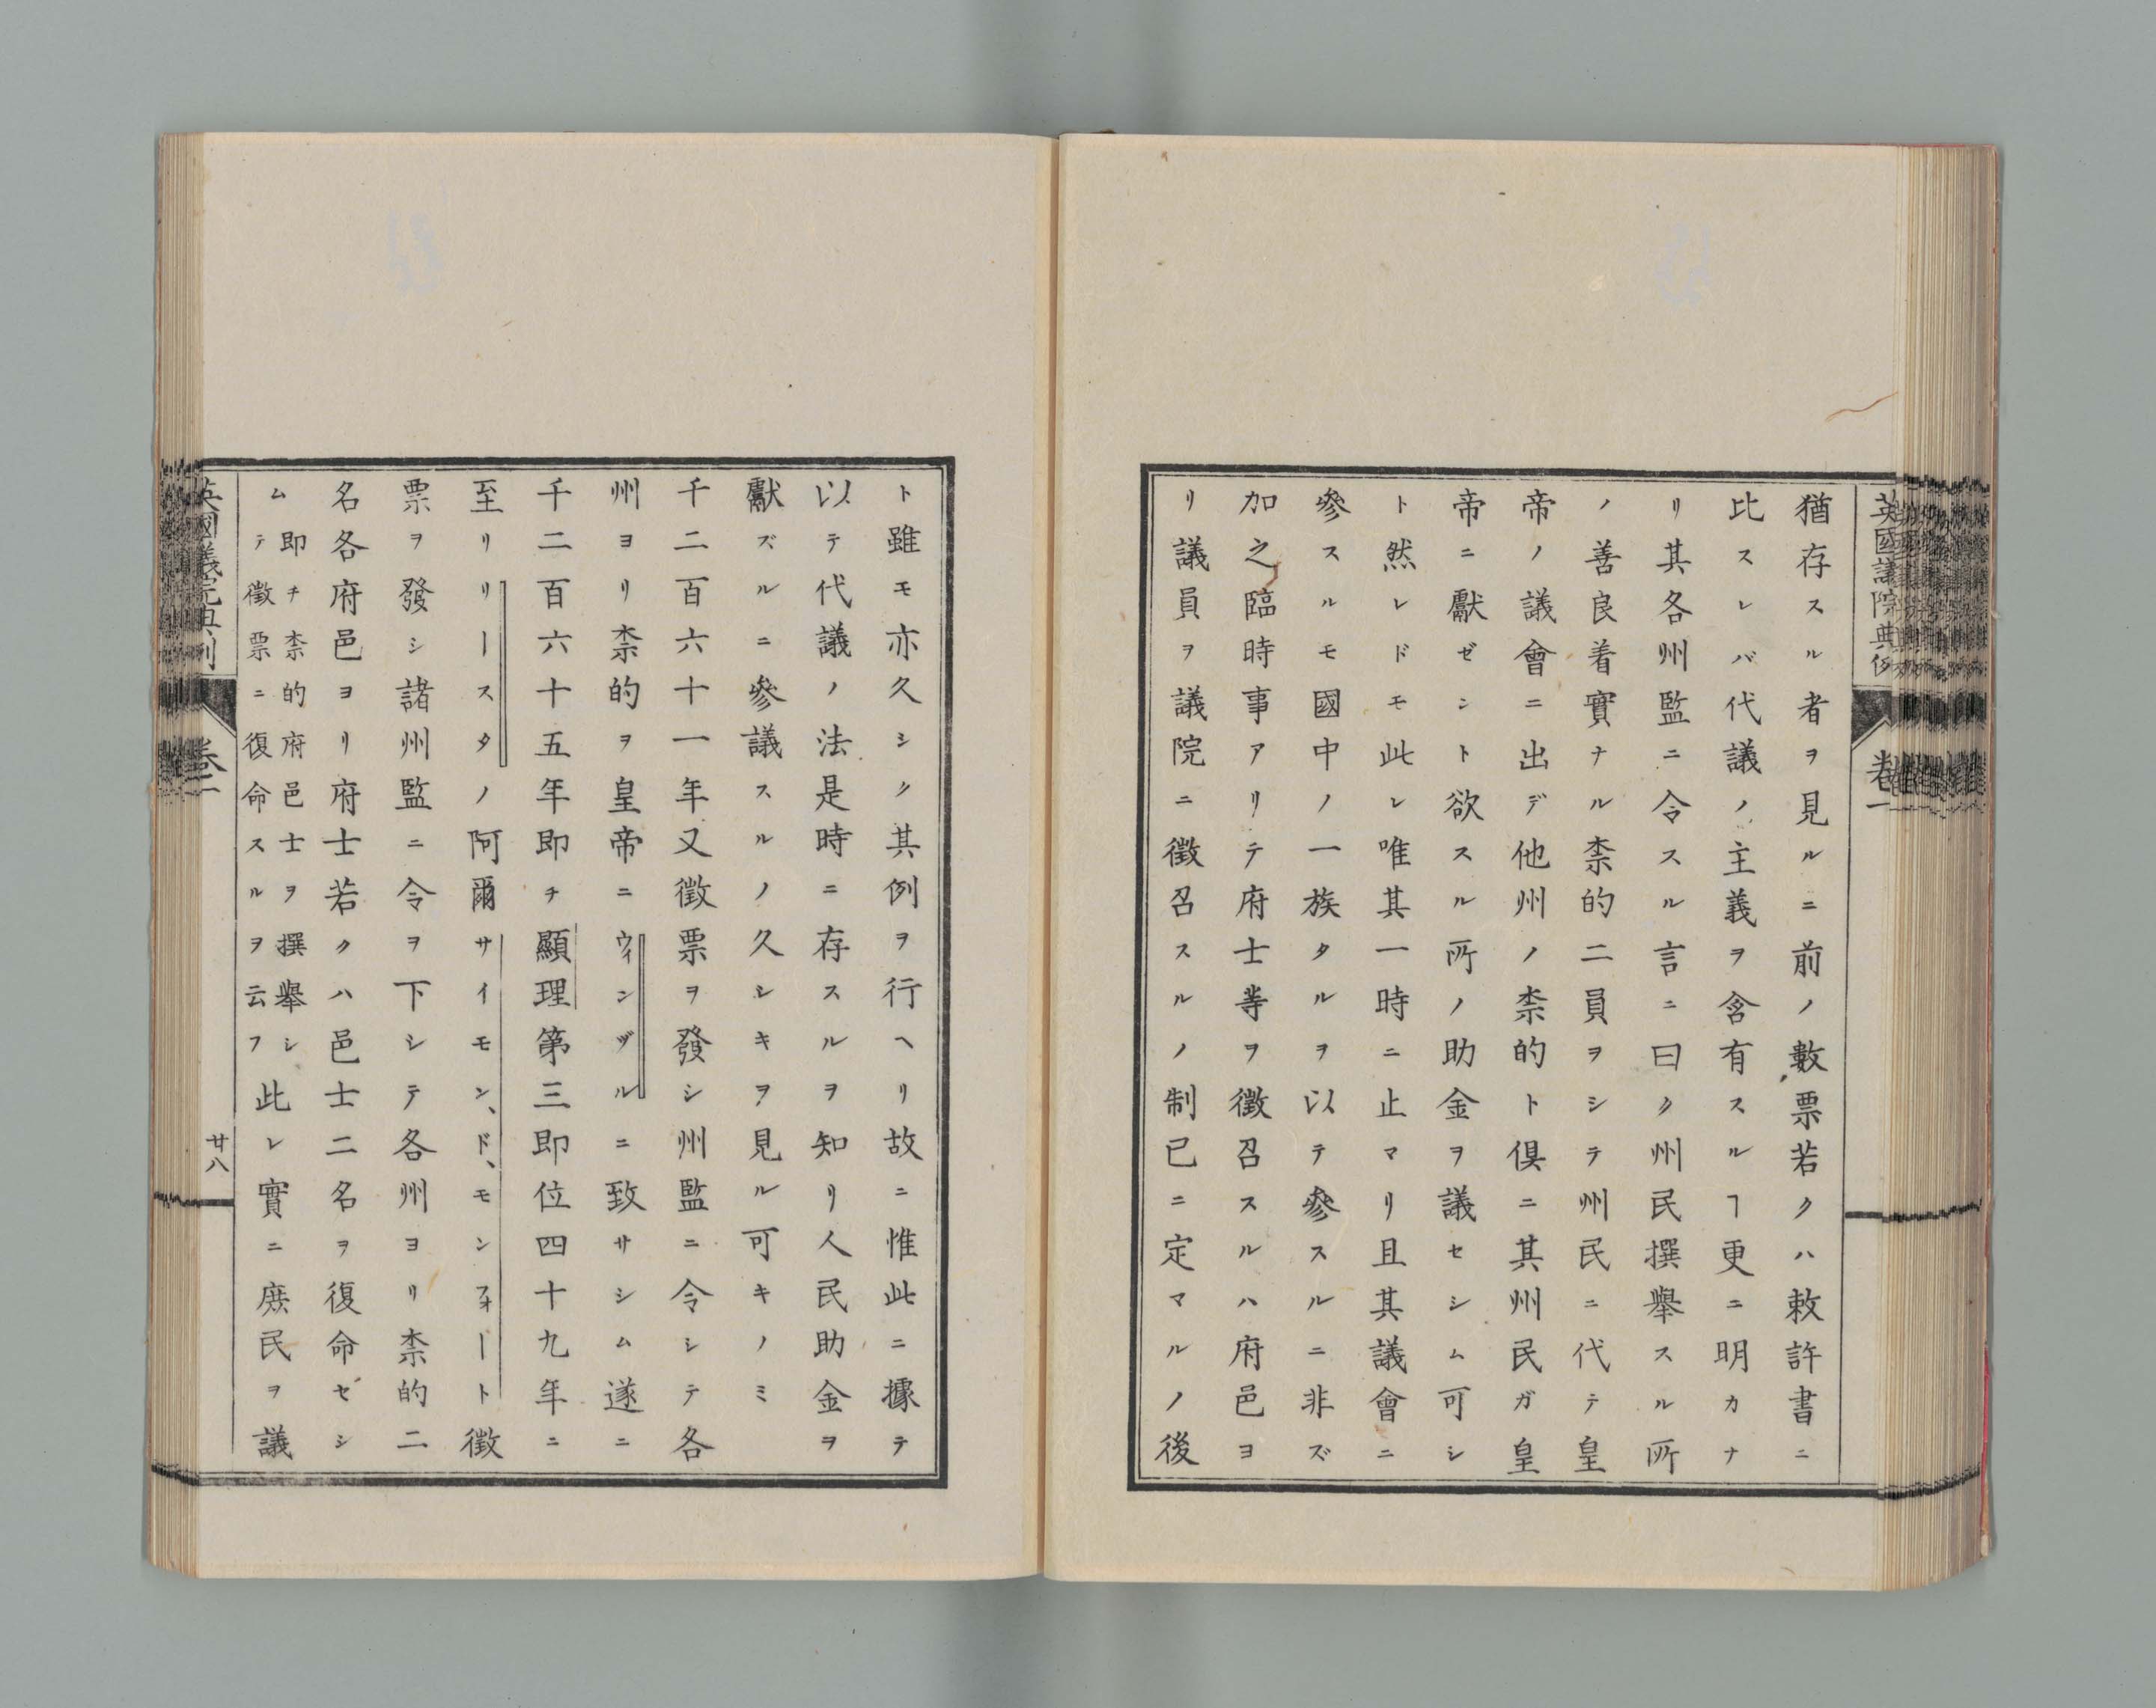 英國議院典例
卷一
猶存スル者ヲ見ルニ前ノ數票若クハ敕許書ニ
比スレバ代議ノ主義ヲ含有スルヿ更ニ明カナ
リ其各州監ニ令スル言ニ曰ク州民撰擧スル所
ノ善良着實ナル柰的二員ヲシテ州民ニ代テ皇
帝ノ議會ニ出デ他州ノ柰的ト俱ニ其州民ガ皇
帝ニ獻ゼント欲スル所ノ助金ヲ議セシム可シ
ト然レドモ此レ唯其一時ニ止マリ且其議會ニ
參スルモ國中ノ一族タルヲ以テ參スルニ非ズ
加之臨時事アリテ府士等ヲ徵召スルハ府邑ヨ
リ議員ヲ議院ニ徵召スルノ制已ニ定マルノ後
ト雖モ亦久シク其例ヲ行ヘリ故ニ惟此ニ據テ
以テ代議ノ法是時ニ存スルヲ知リ人民助金ヲ
獻ズルニ參議スルノ久シキヲ見ル可キノミ
千二百六十一年又徵票ヲ發シ州監ニ令シテ各
州ヨリ柰的ヲ皇帝ニウィンヅルニ致サシム遂ニ
千二百六十五年即チ顯理第三即位四十九年ニ
至リリースタノ阿爾サイモン、ド、モンフォート徵
票ヲ發シ諸州監ニ令ヲ下シテ各州ヨリ柰的二
名各府邑ヨリ府士若クハ邑士二名ヲ復命ゼシ
ム即チ柰的府邑士ヲ撰擧シ
テ徵票ニ復命スルヲ云フ此レ實ニ庶民ヲ議
英國議院典例
卷一
廿八